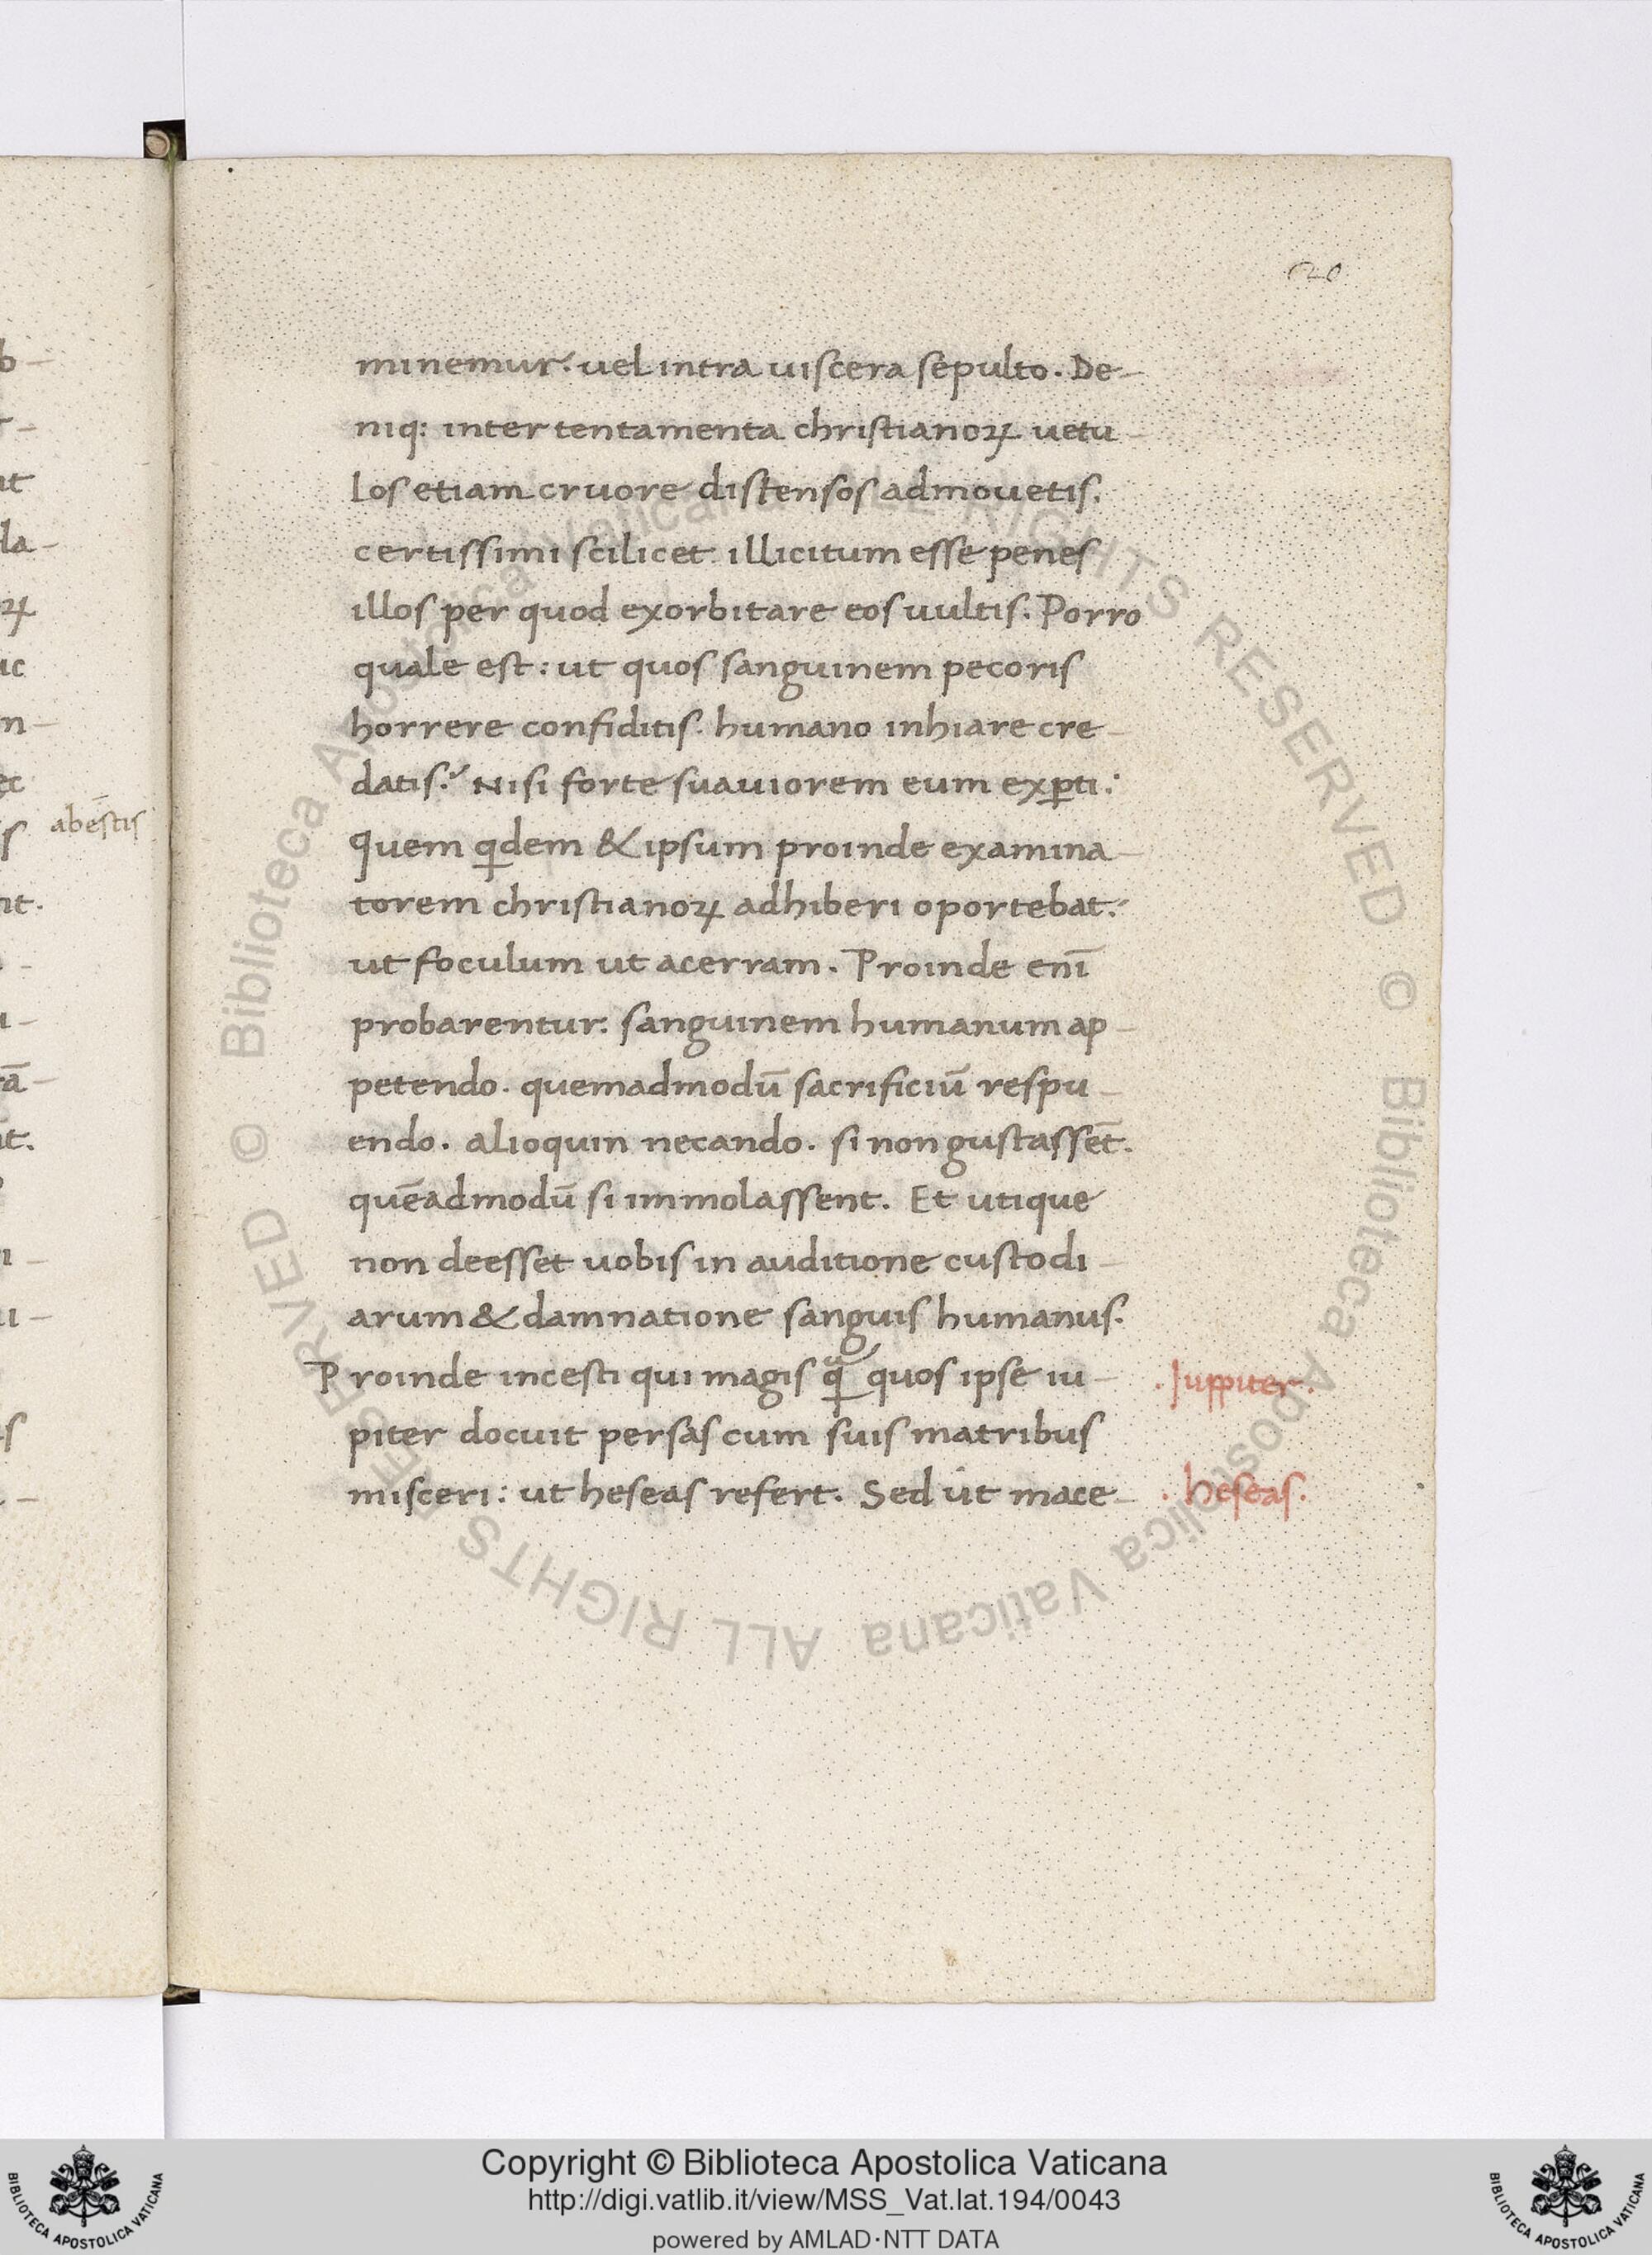 20
minemur. uel intra uiscera sepulto. De-
niq: inter tentamenta christianoꝝ uetu-
los etiam cruore distensos admouetis.
certissimi scilicet illicitum esse penes
illos per quod exorbitare eos uultis. Porro
quale est: ut quos sanguinem pecoris
horrere confiditis. humano inhiare cre-
datis? Nisi forte suauiorem eum exꝑti:
Quem qdem & ipsum proinde examina-
torem christianoꝝ adhiberi oportebat:
ut foculum ut acerram. Proinde enī
probarentur: sanguinem humanum ap-
petendo. quemadmodū sacrificiū respu-
endo. alioquin necando. si non gustassēt.
quēadmodū si immolassent. Et utique
non deesset uobis in auditione custodi-
arum & damnatione sanguis humanus.
Proinde incesti qui magis qͣ̃ quos ipse iu-
piter docuit persas cum suis matribus
misceri: ut heseas refert. Sed ut mace-
. Juppiter.
. heseas.
abēstis
Copyright © Biblioteca Apostolica Vaticana
http://digi.vatlib.it/view/MSS_Vat.lat.194/0043
powered by AMLAD·NTT DATA
BIBLIOTECA APOSTOLICA VATICANA
BIBLIOTECA APOSTOLICA VATICANA
© Biblioteca Apostolica Vaticana ALL RIGHTS RESERVED
© Biblioteca Apostolica Vaticana ALL RIGHTS RESERVED